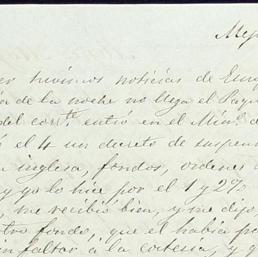 Mej
tuvimos noticias de
de la noche no llega el Paq
del corr.te entró en el Min.o d
el 4 un decreto de suspen
inglesa, fondos, ordenes
y yo lo hice por el 1 y 2%
me recibió bien, y me dijo,
fondo, que el habia p
infaltar á la cortesia, y